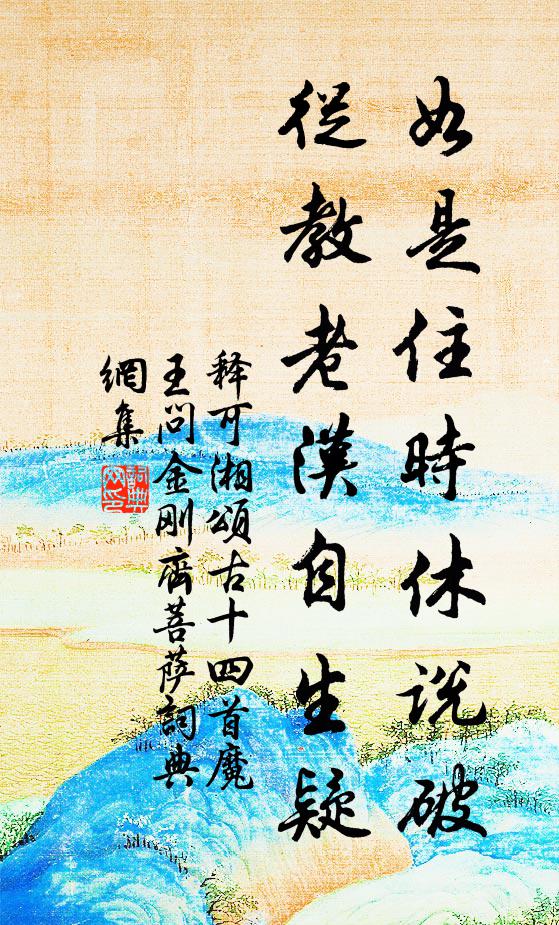 如是住時休說破
從教老漢自生疑
释可湘頌古十四首魔
王问金刚齊菩萨詞典
網集